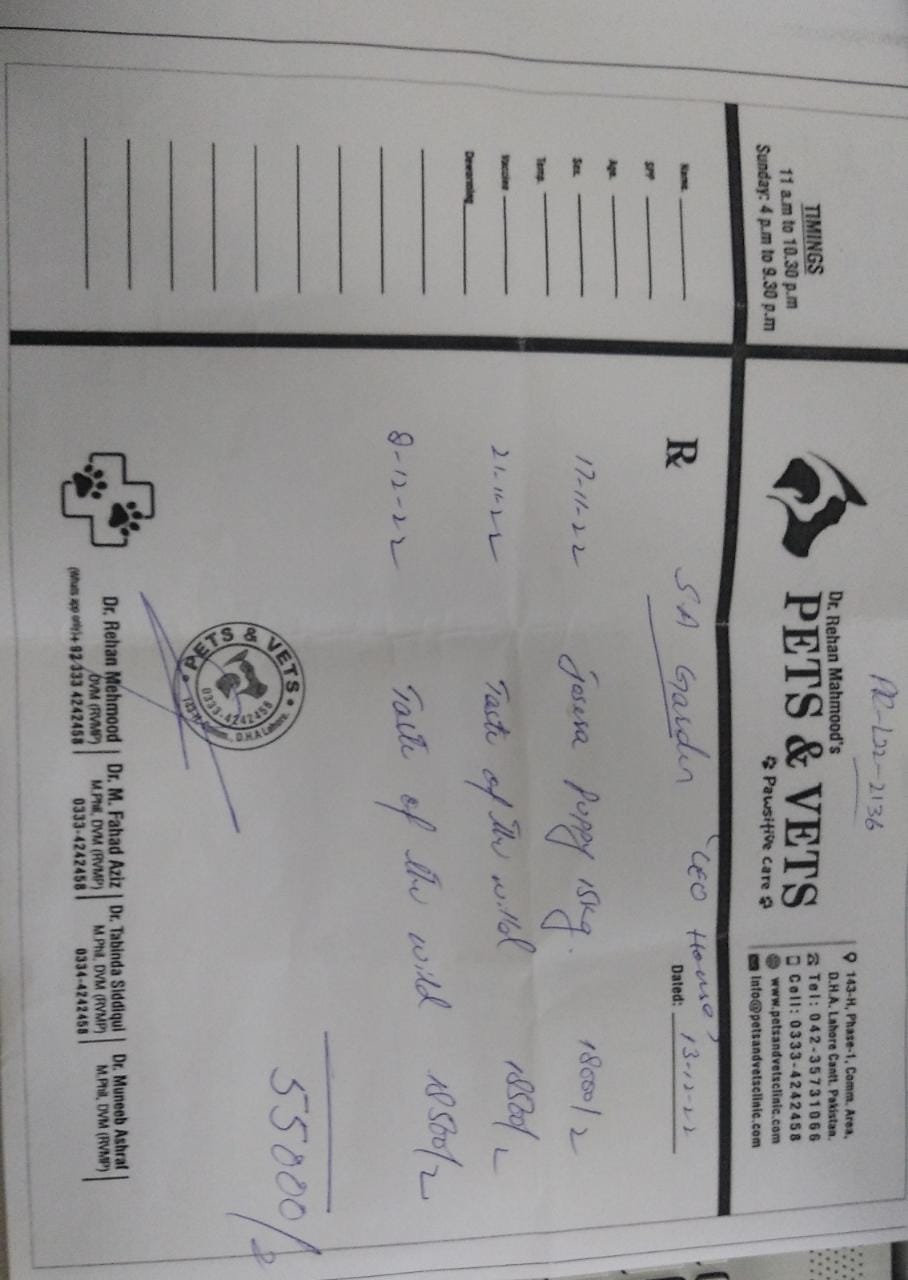 PR-L22-2136
TIMINGS
11 a.m to 10.30 p.m
Sunday: 4 p.m to 9.30 p.m
Dr. Rehan Mahmood's
PETS & VETS
Pawsitive care
143-H, Phase-1, Comm. Area,
D.H.A. Lahore Cantt. Pakistan.
Tel: 042-35731066
Cell: 0333-4242458
www.petsandvetsclinic.com
Info@petsandvetsclinic.com
Name.
SPP
Age.
Sex.
Temp.
Vaccine
Deworming
Dated: 13-12-22
R SA Garden "CEO House"
17-11-22 Josera Puppy 15kg. 18000/2
21-11-22 Taste of the wild 18500/2
8-12-22 Taste of the wild 18500/2
55000/2
PETS & VETS
0333-4242458
D.H.A Lahore.
Dr. Rehan Mehmood
DVM (RVMP)
(Whats app only)+ 92-333 4242458
Dr. M. Fahad Aziz
M.Phil, DVM (RVMP)
0333-4242458
Dr. Tabinda Siddiqui
M.Phil, DVM (RVMP)
0334-4242458
Dr. Muneeb Ashraf
M.Phil, DVM (RVMP)